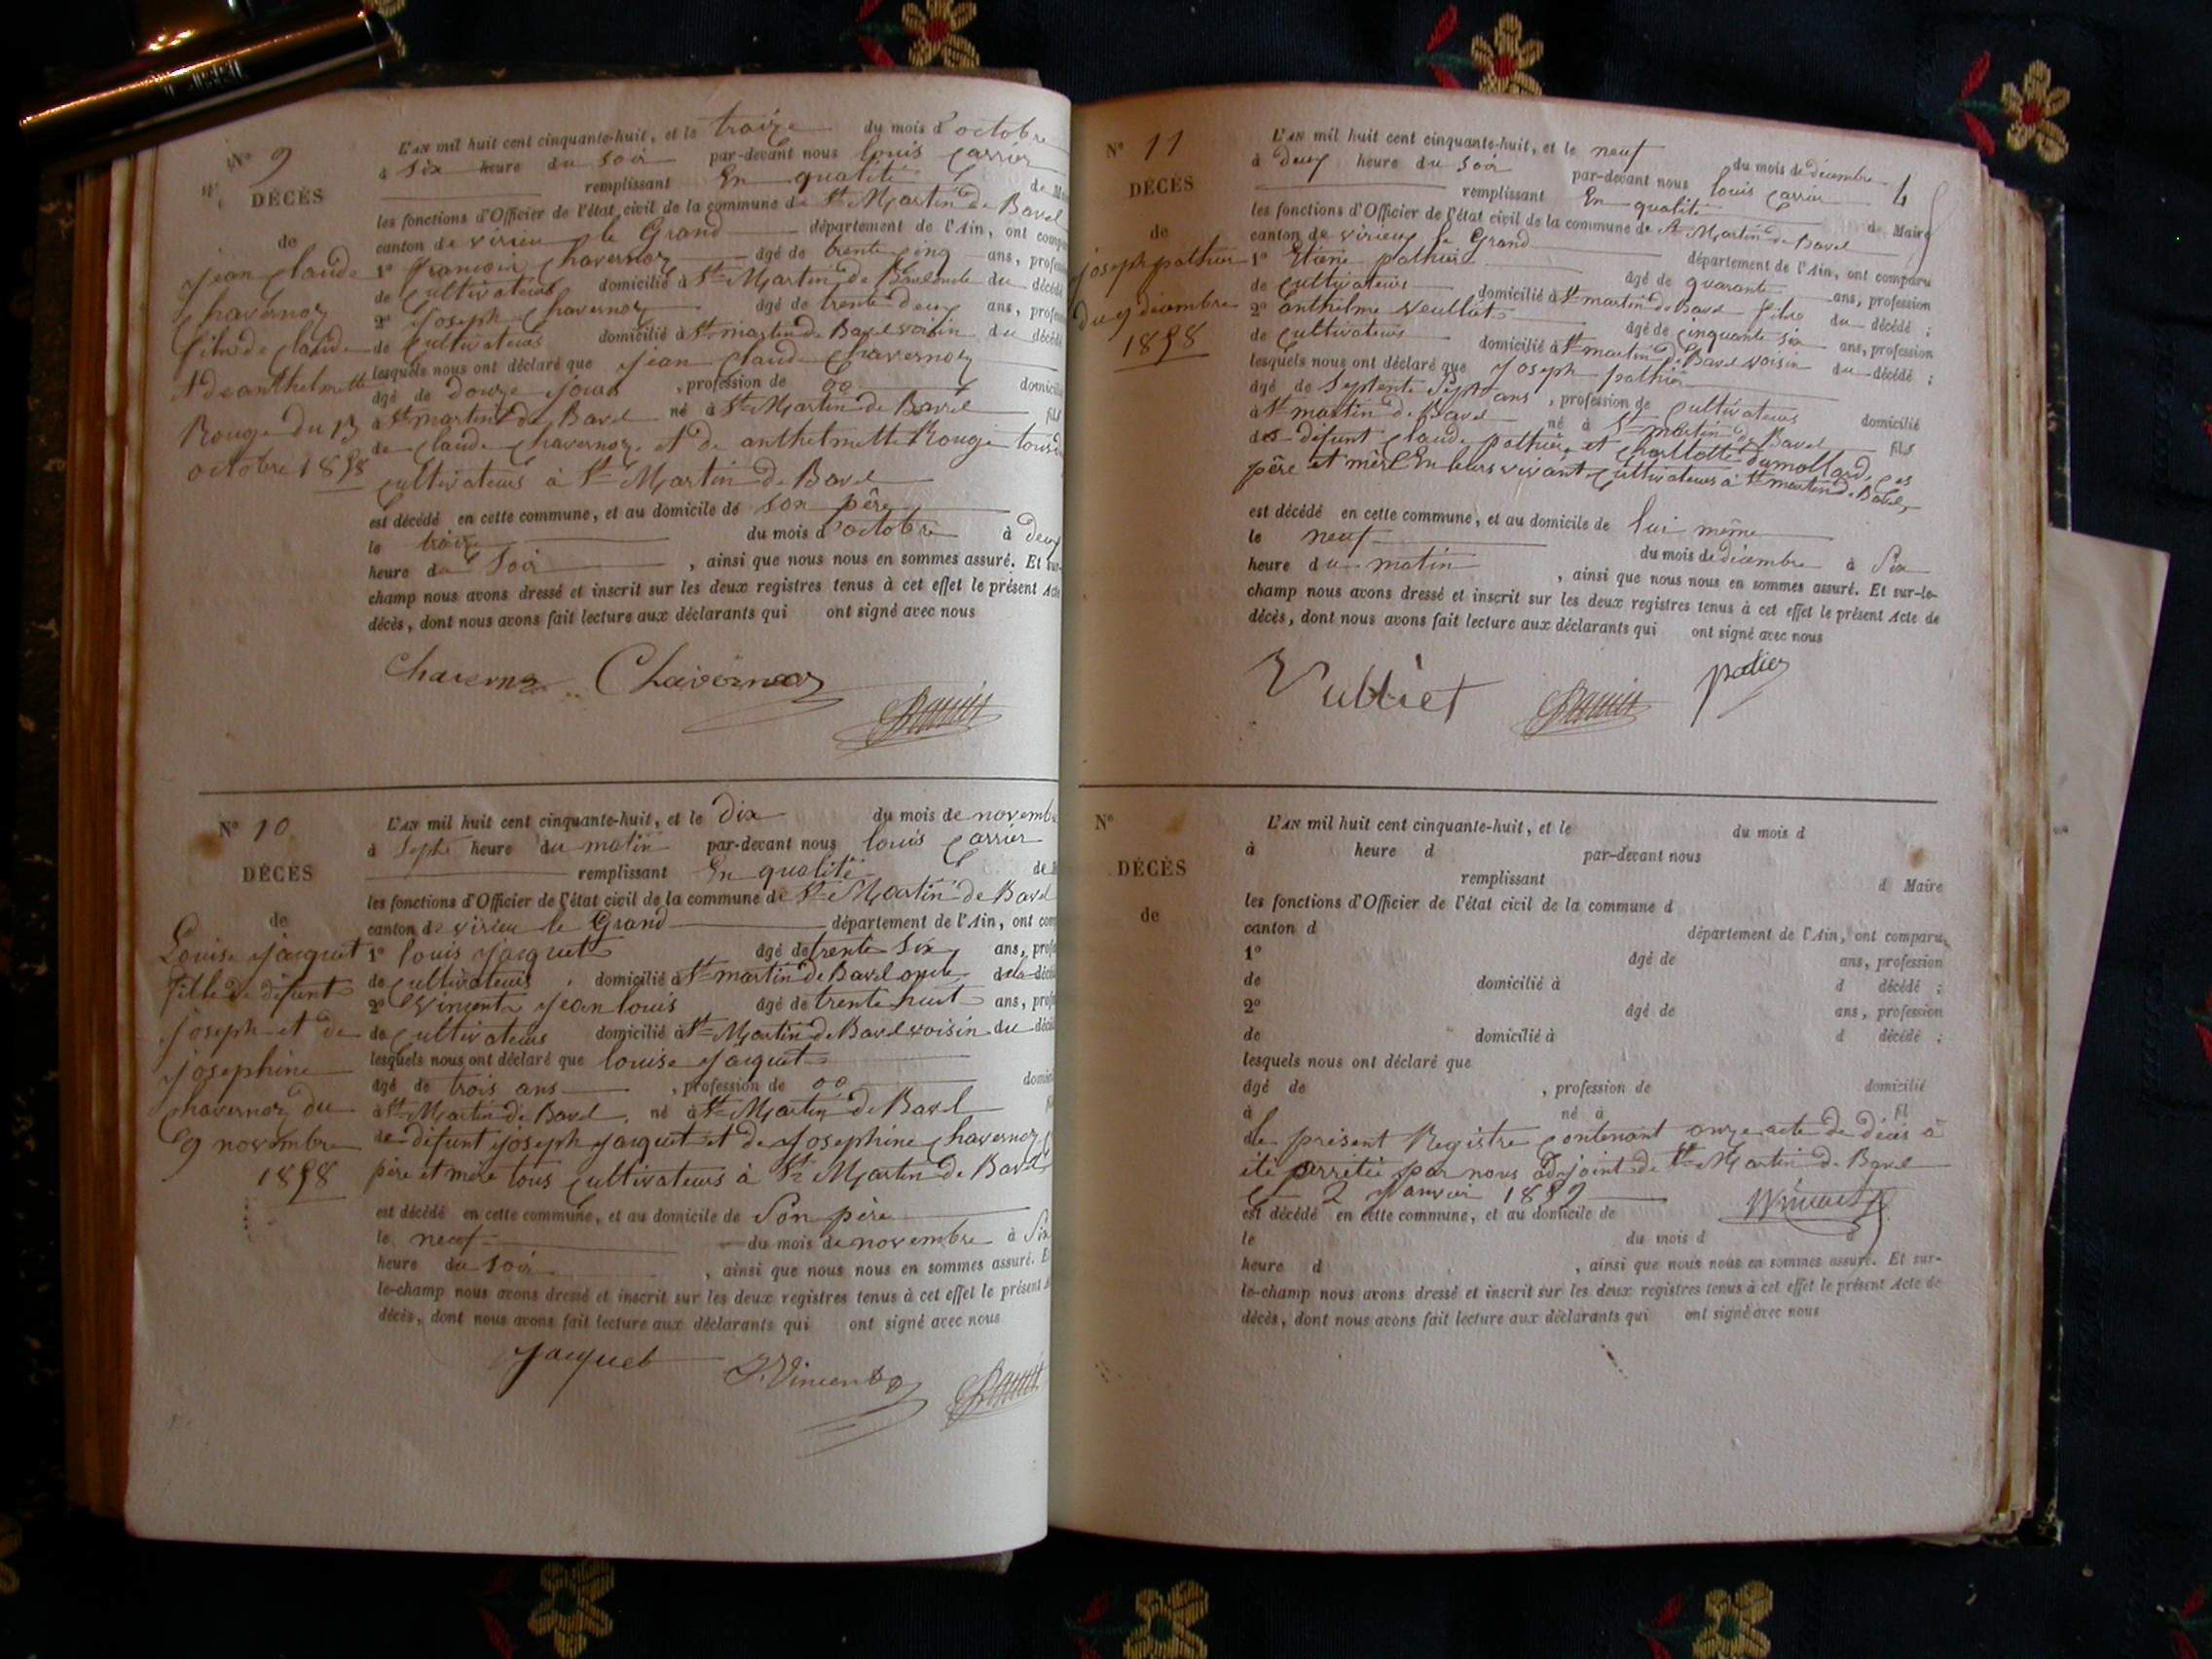 N° 9
DÉCÈS
de
jean claude
chavernoz
filre de claude
et de anthelmette
Rouge du 13
octobre 1858
L'AN mil huit cent cinquante-huit, et le traize du mois d'octobre
à six heure du soir par-devant nous louis carrier
remplissant En qualité de
les fonctions d'Officier de l'état civil de la commune de St Martin de Bavel
canton de virieu le Grand département de l'Ain, ont
1° françois chavernoz âgé de trente cinq ans,
de cultivateurs domicilié à St Martin de Bavel du décédé
2° joseph chavernoz âgé de trente deux ans,
de cultivateurs domicilié à St martin de Bavel voisin du décédé
lesquels nous ont déclaré que jean claude chavernoz
âgé de douze jours , profession de 00
à St martin de Bavel né à St Martin de Bavel fils
de claude chavernoz et de anthelmette Rouge tous
cultivateurs à St Martin de Bavel
est décédé en cette commune, et au domicile de son père
le traize du mois d'octobre à deux
heure du soir , ainsi que nous nous en sommes assuré. Et sur-
champ nous avons dressé et inscrit sur les deux registres tenus à cet effet le présent Acte
décès, dont nous avons fait lecture aux déclarants qui ont signé avec nous
Chavernoz
N° 10
DÉCÈS
de
Louise jacquet
fille de défunt
joseph et de
josephine
chavernoz du
9 novembre
1858
L'AN mil huit cent cinquante-huit, et le dix du mois de novembre
à septe heure du matin par-devant nous louis carrier
remplissant En qualité de
les fonctions d'Officier de l'état civil de la commune de St Martin de Bavel
canton de virieu le Grand département de l'Ain, ont
1° louis jacquet âgé de trente six ans,
de cultivateurs domicilié à St martin de Bavel oncle de la
2° Vincent jean louis âgé de trente huit ans,
de cultivateurs domicilié à St Martin de Bavel voisin du
lesquels nous ont déclaré que louise jacquet
âgé de trois ans , profession de 00
à St Martin de Bavel né à St Martin de Bavel
de défunt joseph jacquet et de josephine chavernoz
père et mère tous cultivateurs à St Martin de Bavel
est décédé en cette commune, et au domicile de son père
le neuf du mois de novembre à six
heure du soir , ainsi que nous nous en sommes assuré. Et
le-champ nous avons dressé et inscrit sur les deux registres tenus à cet effet le présent
décès, dont nous avons fait lecture aux déclarants qui ont signé avec nous
Jacquet J. Vincent
N° 11
DÉCÈS
de
joseph pathier
du 9 décembre
1858
L'AN mil huit cent cinquante-huit, et le neuf du mois de décembre
à deux heure du soir par-devant nous louis carrier
remplissant En qualité de Maire
les fonctions d'Officier de l'état civil de la commune de St Martin de Bavel
canton de virieux le Grand département de l'Ain, ont comparu
1° Etiene pathier âgé de quarante ans, profession
de cultivateurs domicilié à St martin de Bavel filre du décédé ;
2° anthelme veulliet âgé de cinquante six ans, profession
de cultivateurs domicilié à St martin de Bavel voisin du décédé ;
lesquels nous ont déclaré que joseph pathier
âgé de septente sept ans , profession de cultivateurs domicilié
à St martin de Bavel né à St martin de Bavel fils
des défunt claude pathier et charllotte dumollard, ces
père et mère En leurs vivant cultivateurs à St martin de Bavel
est décédé en cette commune, et au domicile de lui même
le neuf du mois de décembre à six
heure du matin , ainsi que nous nous en sommes assuré. Et sur-le-
champ nous avons dressé et inscrit sur les deux registres tenus à cet effet le présent Acte de
décès, dont nous avons fait lecture aux déclarants qui ont signé avec nous
Vulliet
N°
DÉCÈS
de
L'AN mil huit cent cinquante-huit, et le du mois d
à heure d par-devant nous
remplissant d Maire
les fonctions d'Officier de l'état civil de la commune d
canton d département de l'Ain, ont comparu
1° âgé de ans, profession
de domicilié à d décédé ;
2° âgé de ans, profession
de domicilié à d décédé ;
lesquels nous ont déclaré que
âgé de , profession de domicilié
à né à fil
le présent Registre contenant onze acte de décès à
été arrêtée par nous adjoint de St Martin de Bavel
le 2 janvier 1859
est décédé en cette commune, et au domicile de
le du mois d à
heure d , ainsi que nous nous en sommes assuré. Et sur-
le-champ nous avons dressé et inscrit sur les deux registres tenus à cet effet le présent Acte de
décès, dont nous avons fait lecture aux déclarants qui ont signé avec nous